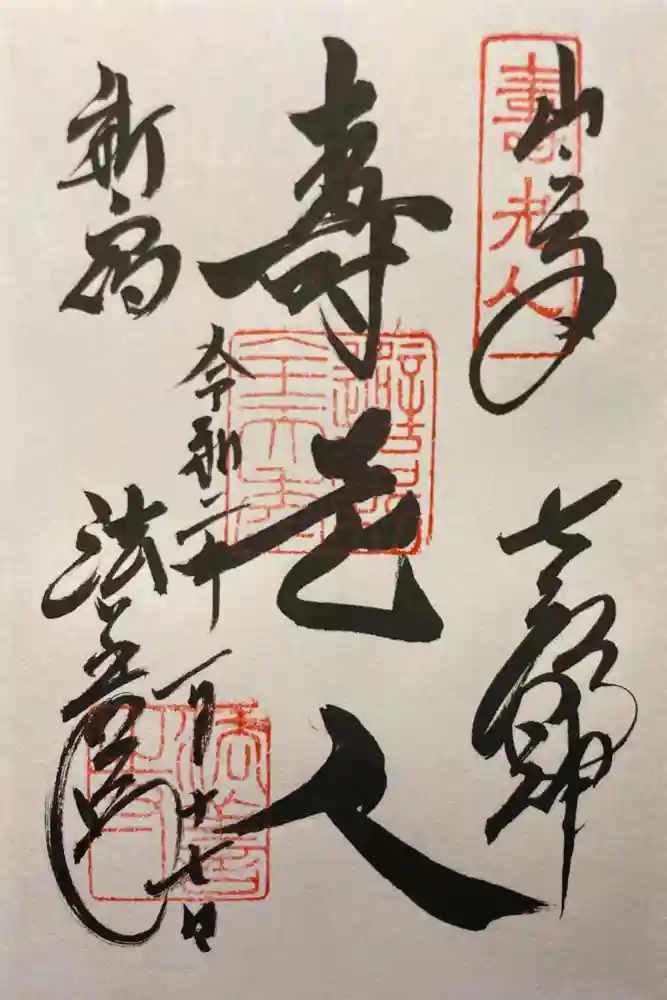 山之手 七福神
壽老人
壽老人
令和二年一月十七日
新宿 法善寺